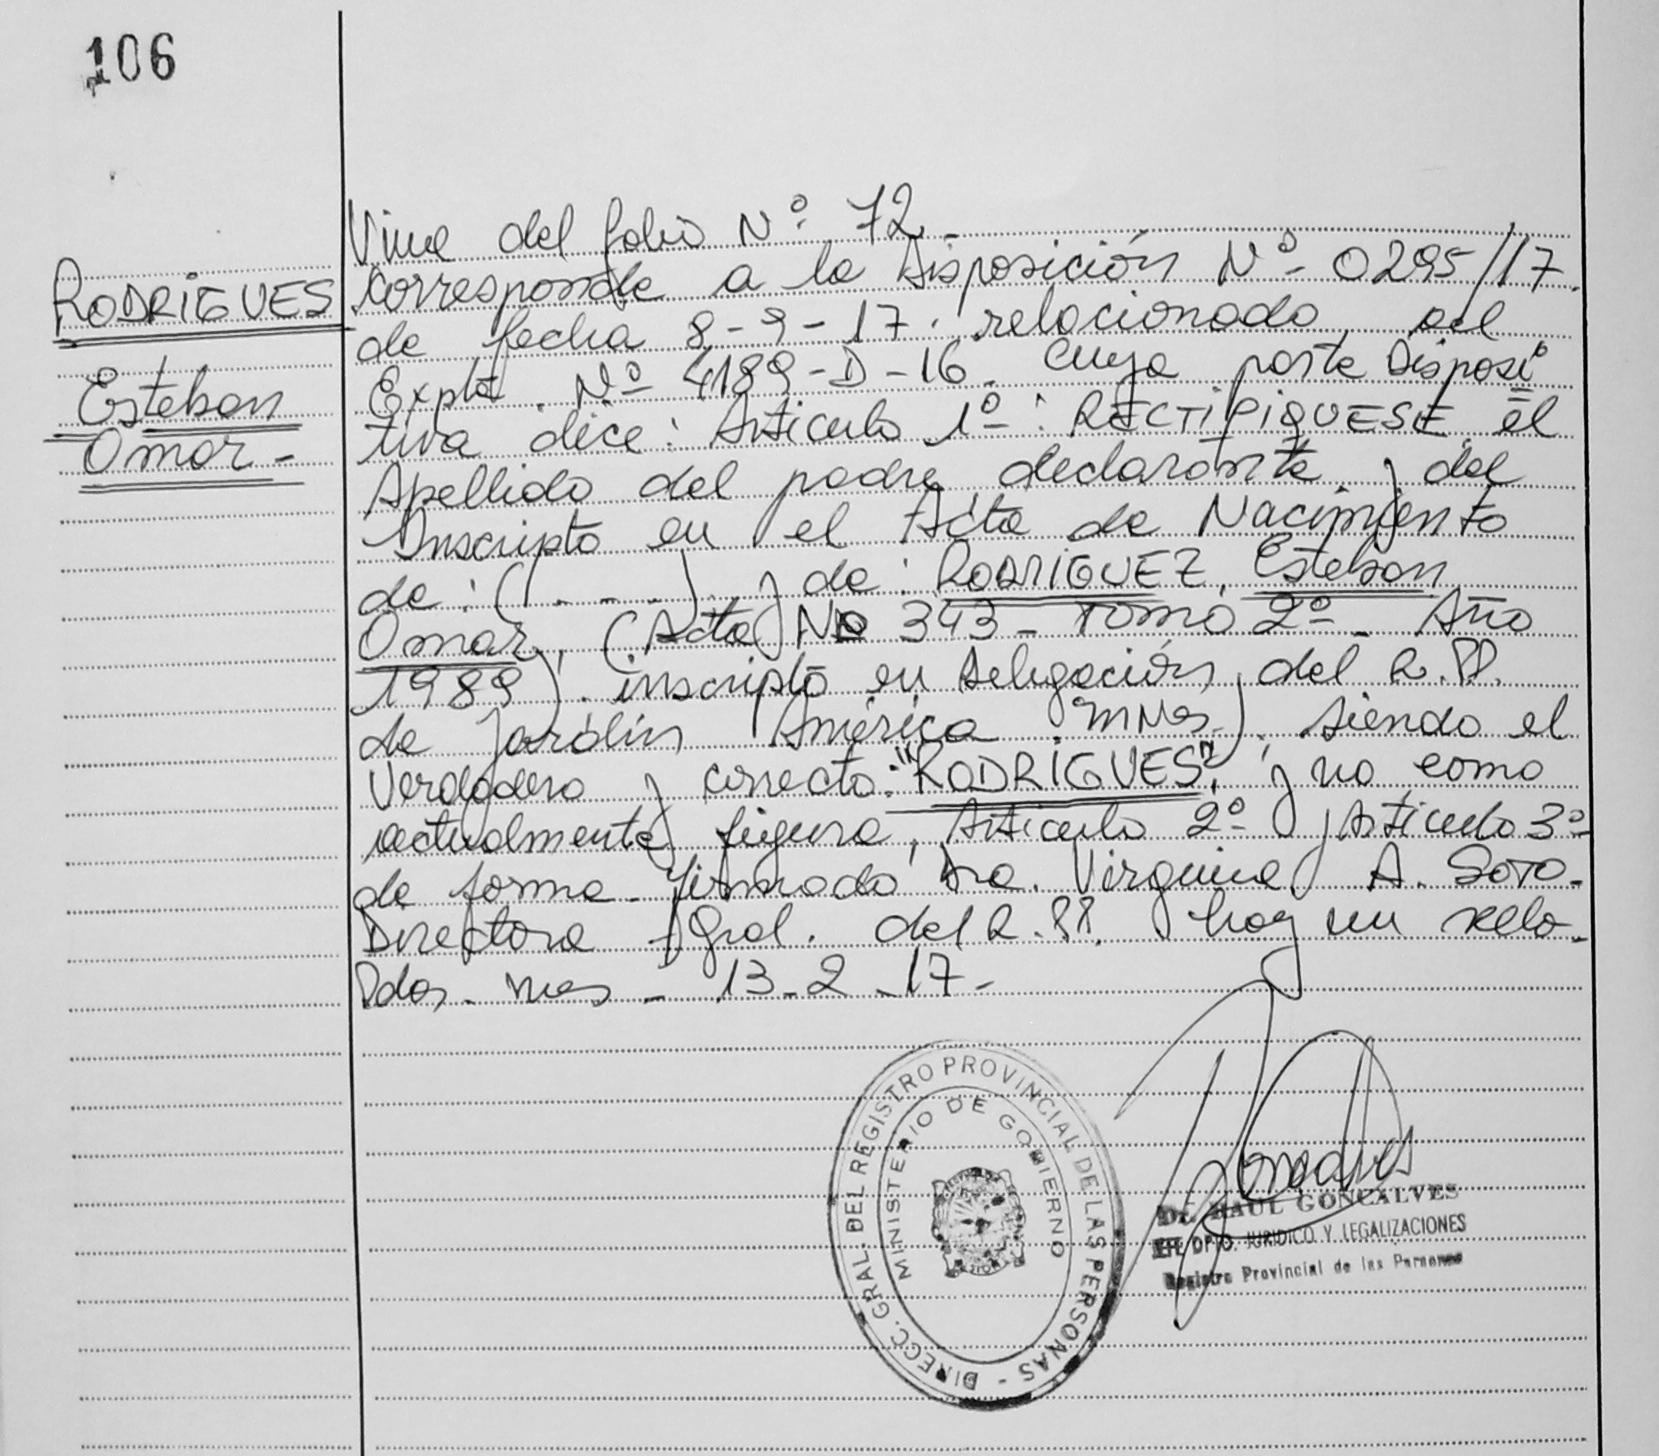 106
RODRIGUES
Esteban
Omar -
Viene del folio Nº 72. -
Corresponde a la Disposición Nº - 0295/17.
de fecha 8-9-17. relacionado al
Expte. Nº 4189-D-16. cuya parte Disposi
tiva dice: Artículo 1º: RECTIFIQUESE el
Apellido del padre declarante, y del
Inscripto en el Acta de Nacimiento
de: (.....) y de: RODRIGUEZ, Esteban
Omar, (Acta Nº 343 - Tomo 2º - Año
1989). inscripto en Delegación, del R.PP.
de Jardín América Mnes.). siendo el
Verdadero y correcto: "RODRIGUES", y no como
actualmente figura, Artículo 2º y Artículo 3º
de forma. firmado Dra. Virginia A. Soto.
Directora Gral. del R.PP. hay un sello.
Pdas. Mnes - 13-2-17-
DIRECC. GRAL. DEL REGISTRO PROVINCIAL DE LAS PERSONAS -
MINISTERIO DE GOBIERNO
Dr. RAUL GONCALVES
DPTO. JURIDICO Y LEGALIZACIONES
Registro Provincial de las Personas